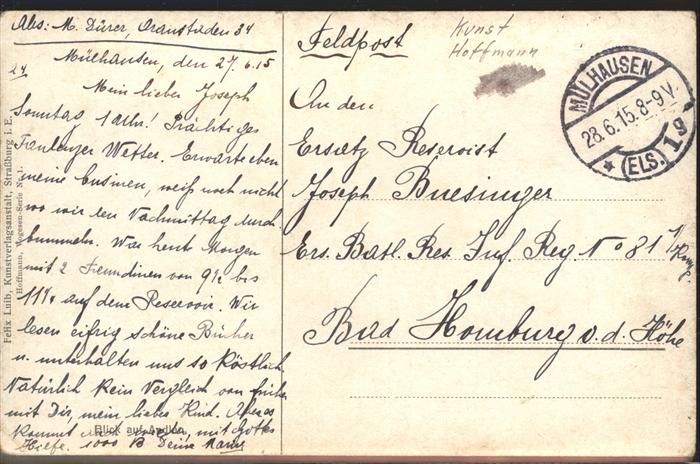 Abs: M. Dürer, Oranstuden 34
Mülhausen, den 27.6.15
24
Mein lieber Joseph
Sonntag 1 Uhr! Prächtiges
Faulenzer Wetter. Erwarte eben
meine Cusinen, weiß noch nicht
wo wir den Nachmittag durch-
bummeln. War heut Morgen
mit 2 Freundinen von 9½ bis
11¼ auf dem Reservoir. Wir
lesen eifrig schöne Bücher
u. unterhalten uns so köstlich.
Natürlich kein Vergleich von früher
mit Dir, mein liebes Kind. Aber es
kommt auch wieder, mit Gottes
Hilfe. 1000 B Deine
Blick auf Andlau.
Felix Luib, Kunstverlagsanstalt, Straßburg i. E.
Hoffmann, Vogesen-Serie No. 1.
Feldpost
Kunst
Hoffmann
MÜLHAUSEN
28.6.15.8-9V.
* (ELS.) 1g
An den
Ersatz Reservist
Joseph Buesinger
Ers. Batl. Res. Inf. Reg. No 81
Bad Homburg v. d. Höhe